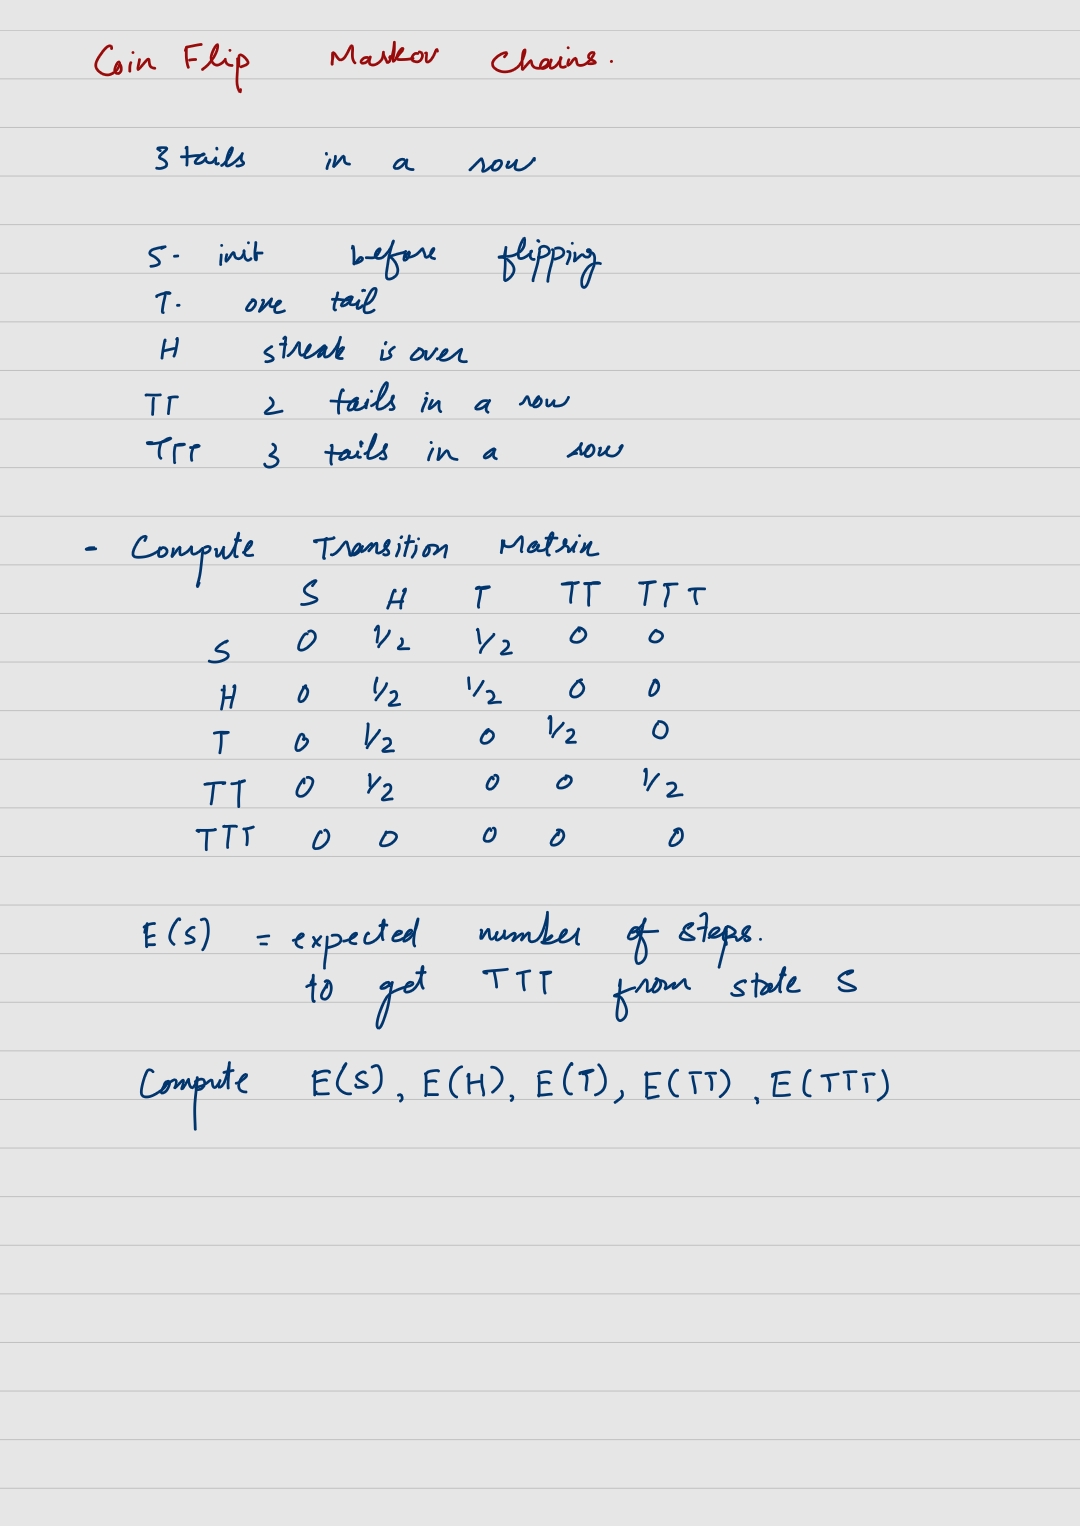 Coin Flip Markov Chains.
3 tails in a row
S- init before flipping
T. one tail
H streak is over
TT 2 tails in a row
TTT 3 tails in a row
- Compute Transition Matrix
S H T TT TTT
S 0 1/2 1/2 0 0
H 0 1/2 1/2 0 0
T 0 1/2 0 1/2 0
TT 0 1/2 0 0 1/2
TTT 0 0 0 0 0
E(S) = expected number of steps.
to get TTT from state S
Compute E(S), E(H), E(T), E(TT), E(TTT)